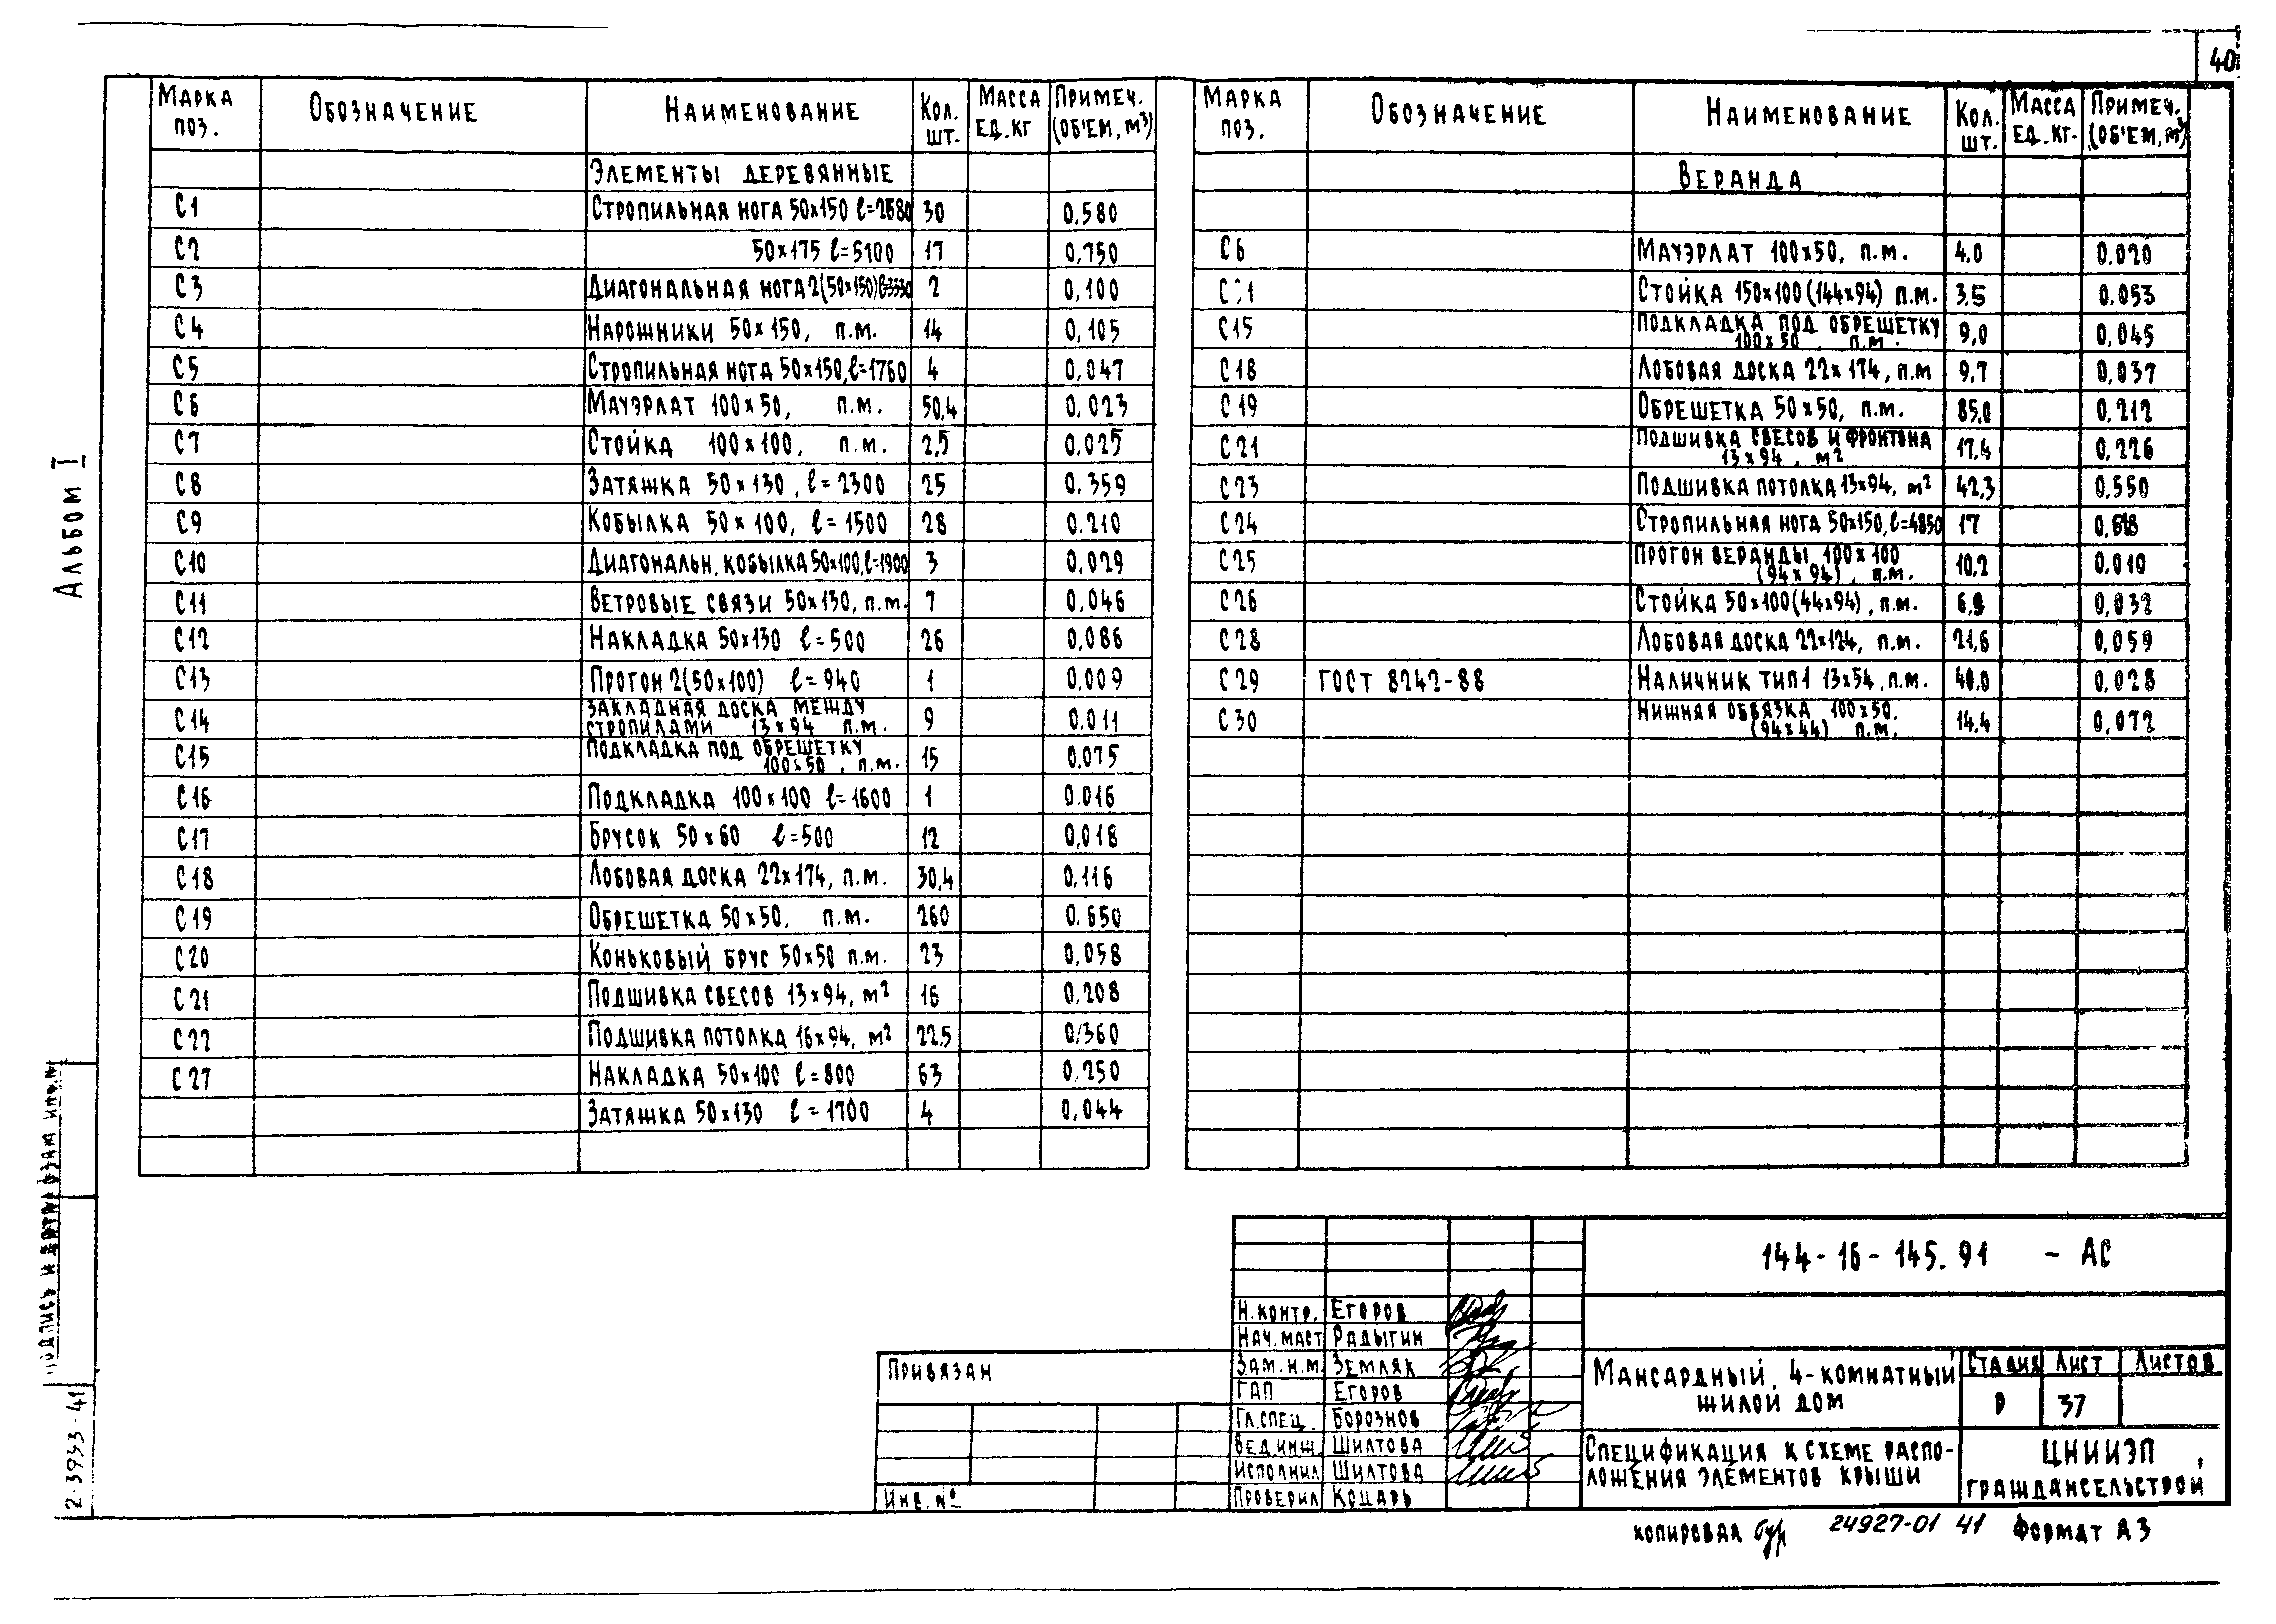 40
Марка поз. Обозначение Наименование Кол. шт. Масса ед. кг Примеч. (об'ем, м³)
Элементы деревянные
С1 Стропильная нога 50х150 ℓ=2580 30 0,580
С2 50х175 ℓ=5100 17 0,750
С3 Диагональная нога 2(50х150) ℓ=3330 2 0,100
С4 Нарожники 50х150, п.м. 14 0,105
С5 Стропильная нога 50х150, ℓ=1760 4 0,047
С6 Мауэрлат 100х50, п.м. 50,4 0,023
С7 Стойка 100х100, п.м. 2,5 0,025
С8 Затяжка 50х130, ℓ=2300 25 0.359
С9 Кобылка 50х100, ℓ=1500 28 0.210
С10 Диагональн. кобылка 50х100, ℓ=1900 3 0,029
С11 Ветровые связи 50х130, п.м. 7 0,046
С12 Накладка 50х130 ℓ=500 26 0,086
С13 Прогон 2(50х100) ℓ=940 1 0,009
С14 Закладная доска между
стропилами 13х94 п.м. 9 0.011
С15 Подкладка под обрешетку
100х50, п.м. 15 0,075
С16 Подкладка 100х100 ℓ=1600 1 0.016
С17 Брусок 50х60 ℓ=500 12 0,018
С18 Лобовая доска 22х174, п.м. 30,4 0,116
С19 Обрешетка 50х50, п.м. 260 0.650
С20 Коньковый брус 50х50 п.м. 23 0,058
С21 Подшивка свесов 13х94, м² 16 0.208
С22 Подшивка потолка 16х94, м² 22.5 0,360
С27 Накладка 50х100 ℓ=800 63 0.250
Затяжка 50х130 ℓ=1700 4 0,044
Марка поз. Обозначение Наименование Кол. шт. Масса ед. кг. Примеч. (об'ем, м³)
Веранда
С6 Мауэрлат 100х50, п.м. 4,0 0,020
Стойка 150х100 (144х94) п.м. 3,5 0,053
С15 Подкладка под обрешетку
100х50, п.м. 9,0 0,045
С18 Лобовая доска 22х174, п.м 9,7 0,037
С19 Обрешетка 50х50, п.м. 85,0 0,212
С21 Подшивка свесов и фронтона
13х94, м² 17,4 0,226
С23 Подшивка потолка 13х94, м² 42,3 0,550
С24 Стропильная нога 50х150, ℓ=4850 17
С25 Прогон веранды 100х100
(94х94), п.м. 10,2 0.010
С26 Стойка 50х100 (44х94), п.м. 0,032
С28 Лобовая доска 22х124, п.м. 21,6 0,059
С29 ГОСТ 8242-88 Наличник тип 1 13х54, п.м. 40,0 0,028
С30 Нижняя обвязка 100х50,
(94х44) п.м. 14,4 0,072
Альбом I
Подпись и дата Взам инв.№
2-3953-41
144-16-145.91 - АС
Н.контр. Егоров
Нач.маст Радыгин
Зам.н.м. Земляк
ГАП Егоров
Гл.спец. Борознов
Вед.инж. Шилтова
Исполнил Шилтова
Проверил Коцарь
Привязан
Инв.№
Мансардный, 4-комнатный
жилой дом
Стадия Лист Листов
Р 37
Спецификация к схеме распо-
ложения элементов крыши
ЦНИИЭП
граждансельстрой
Копировал 24927-01 41 Формат А3